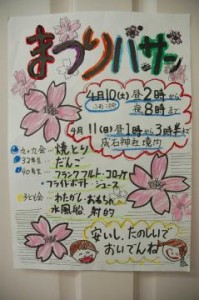 まつりバザー
4月10(土)昼2時から
夜8時まで
4月11(日)昼1時から3時半まで
成石神社境内
焼とり
32年生‥だんご
40年生‥フランクフルト・コロッケ
フライドポテト・ジュース
子ども会‥わたがし・おもちゃ
水風船 射的
安いし、たのしいで
おいでんね